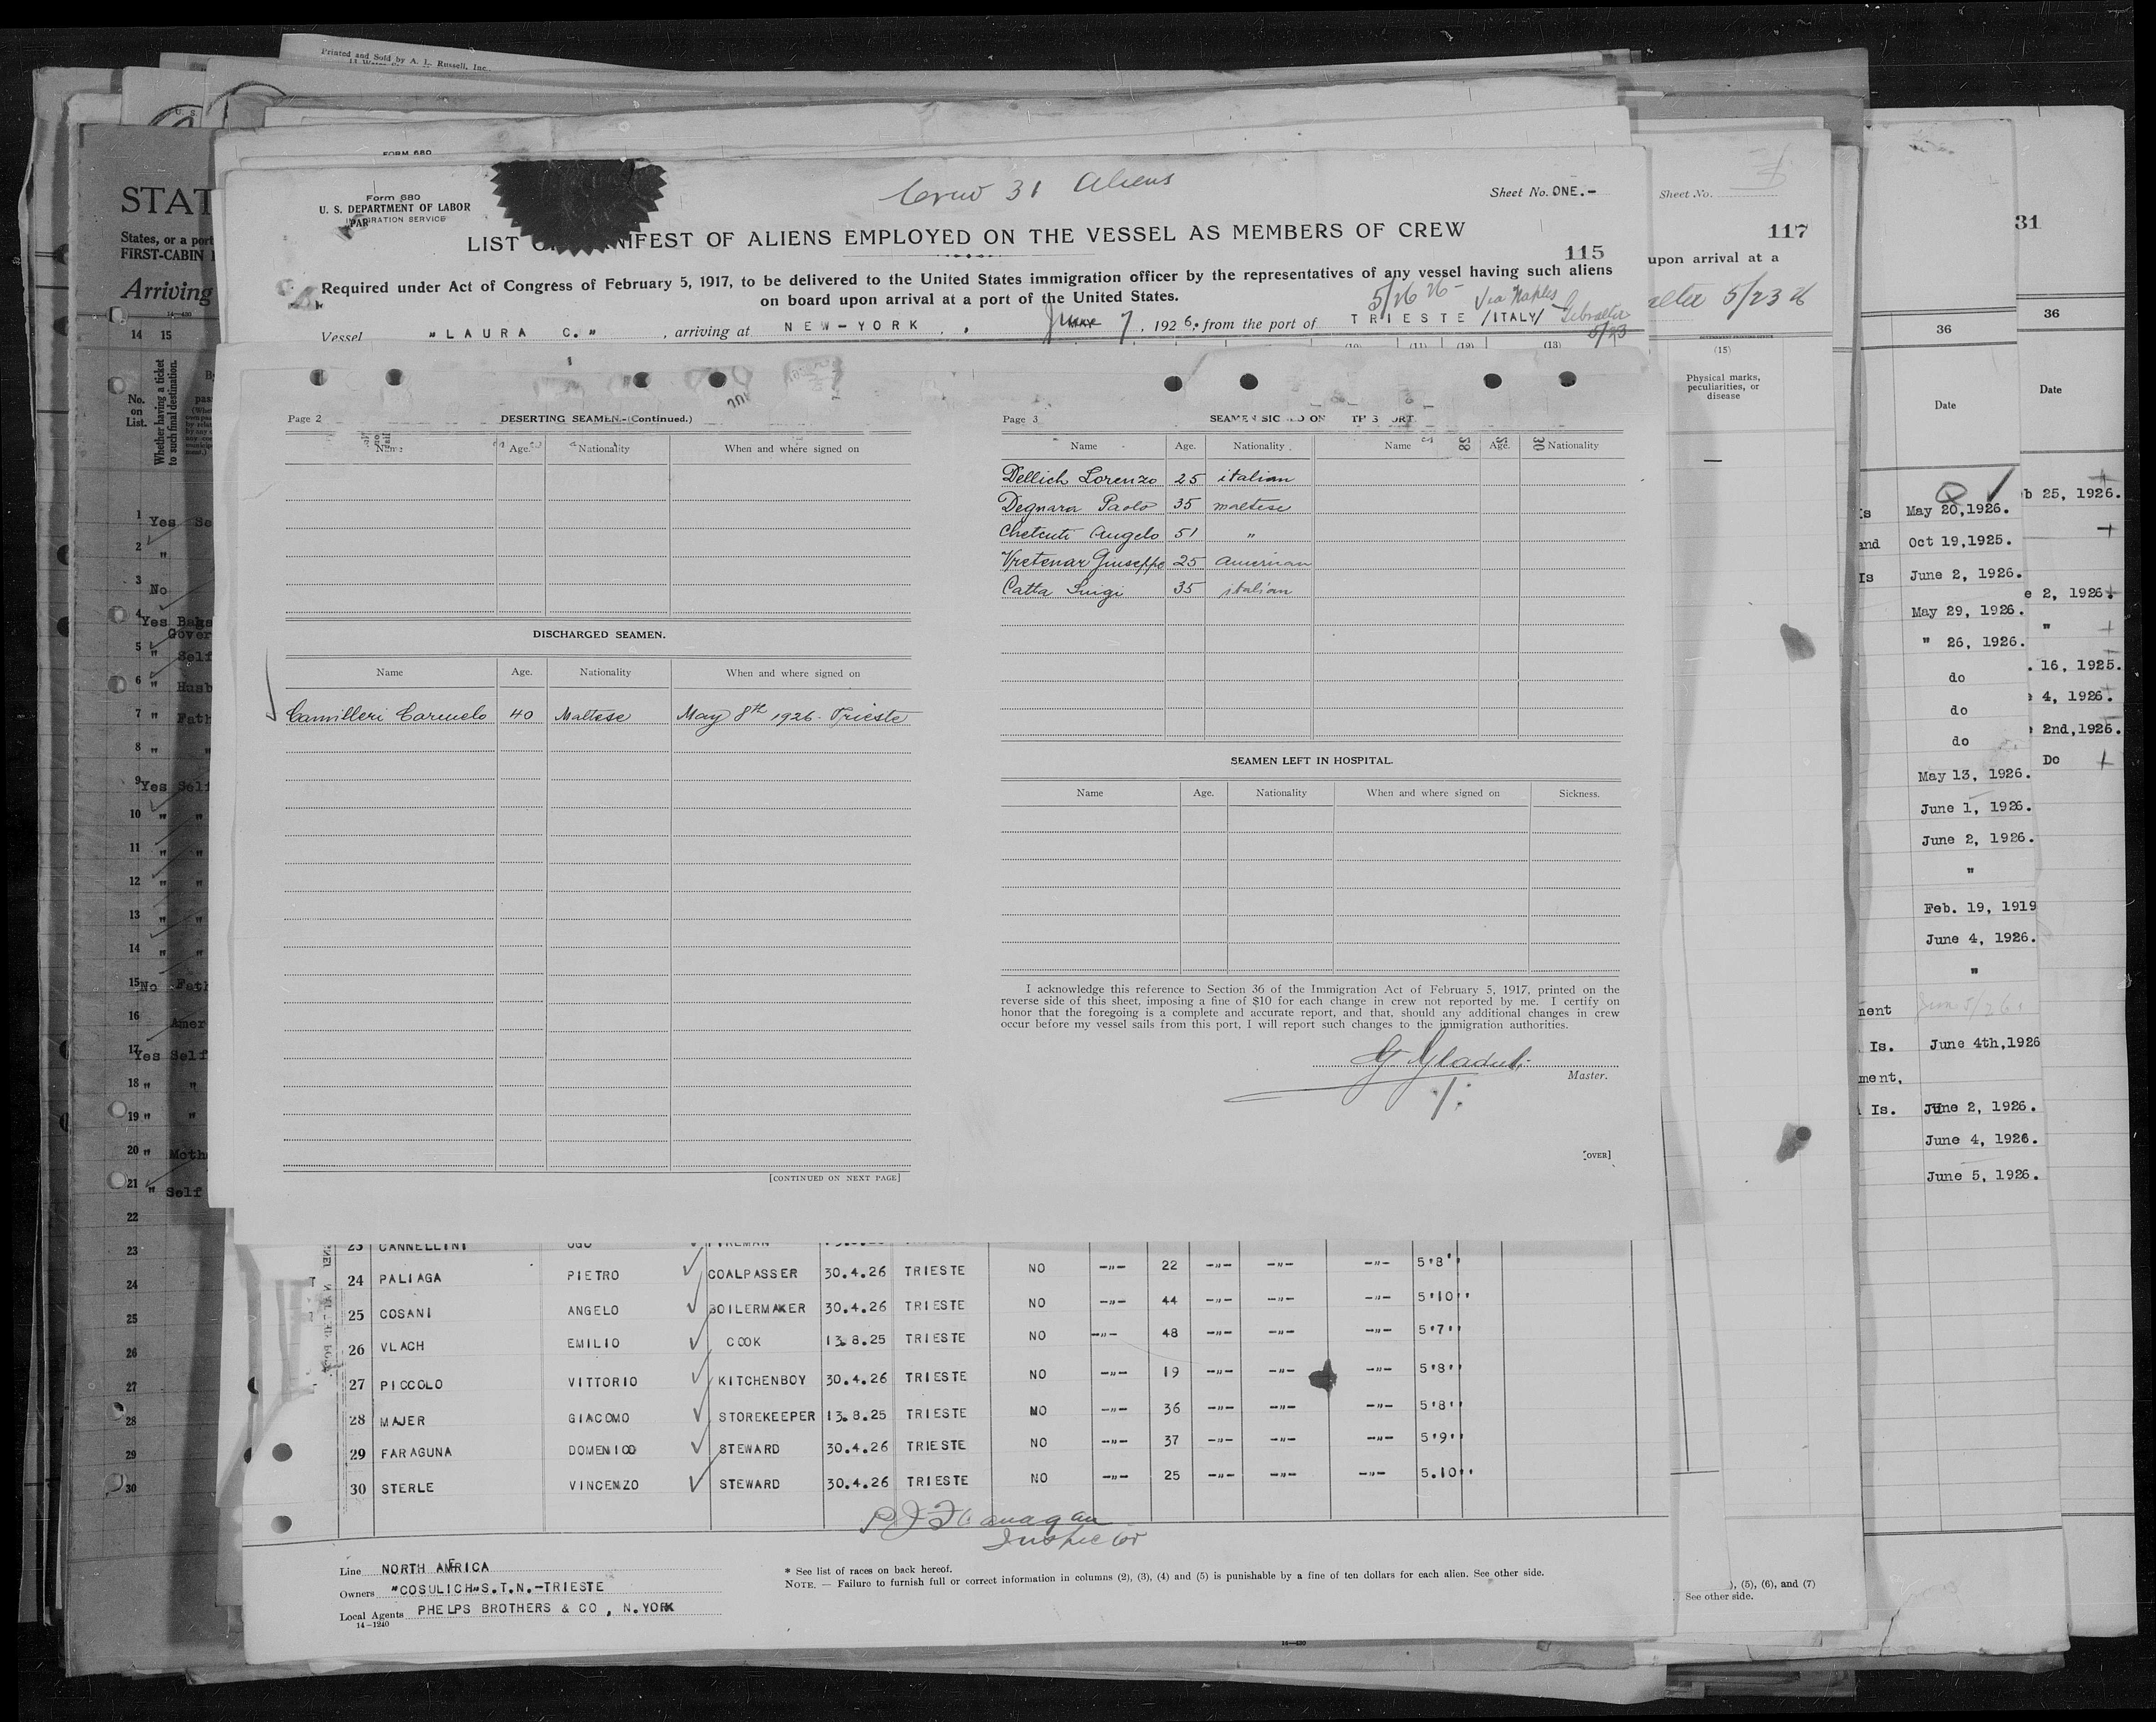 Printed and Sold by A. L. Russell, Inc.
FORM 680
Form 680
U. S. DEPARTMENT OF LABOR
IMMIGRATION SERVICE
Crew 31 Aliens
Sheet No. ONE.-
LIST OR MANIFEST OF ALIENS EMPLOYED ON THE VESSEL AS MEMBERS OF CREW
115
Required under Act of Congress of February 5, 1917, to be delivered to the United States immigration officer by the representatives of any vessel having such aliens
on board upon arrival at a port of the United States.
5/26 26 - Via Naples
Vessel "LAURA C.", arriving at NEW-YORK, June 7, 1926, from the port of TRIESTE /ITALY/ Gibraltar
5/23
(13)
Page 2
DESERTING SEAMEN.-(Continued.)
Name Age. Nationality When and where signed on
DISCHARGED SEAMEN.
Name Age. Nationality When and where signed on
Camilleri Carmelo 40 Maltese May 8th 1926. Trieste
[CONTINUED ON NEXT PAGE]
Page 3
Name Age. Nationality Name Age. Nationality
Dellich Lorenzo 25 italian
Degnara Paolo 35 maltese
Chetcuti Angelo 51 "
Vretenar Giuseppe 25 American
Catta Luigi 35 italian
SEAMEN LEFT IN HOSPITAL.
Name Age. Nationality When and where signed on Sickness.
I acknowledge this reference to Section 36 of the Immigration Act of February 5, 1917, printed on the
reverse side of this sheet, imposing a fine of $10 for each change in crew not reported by me. I certify on
honor that the foregoing is a complete and accurate report, and that, should any additional changes in crew
occur before my vessel sails from this port, I will report such changes to the immigration authorities.
Master.
[OVER]
23 CANNELLINI UGO FIREMAN
24 PALIAGA PIETRO COALPASSER 30.4.26 TRIESTE NO -"- 22 -"- -"- -"- 5'8"
25 COSANI ANGELO BOILERMAKER 30.4.26 TRIESTE NO -"- 44 -"- -"- -"- 5'10"
26 VLACH EMILIO COOK 13.8.25 TRIESTE NO -"- 48 -"- -"- -"- 5'7"
27 PICCOLO VITTORIO KITCHENBOY 30.4.26 TRIESTE NO -"- 19 -"- -"- -"- 5'8"
28 MAJER GIACOMO STOREKEEPER 13.8.25 TRIESTE NO -"- 36 -"- -"- -"- 5'8"
29 FARAGUNA DOMENICO STEWARD 30.4.26 TRIESTE NO -"- 37 -"- -"- -"- 5'9"
30 STERLE VINCENZO STEWARD 30.4.26 TRIESTE NO -"- 25 -"- -"- -"- 5.10"
P J Flanagan
Inspector
Line NORTH AMRICA
Owners "COSULICH"S.T.N.-TRIESTE
Local Agents PHELPS BROTHERS & CO, N.YORK
14-1240
* See list of races on back hereof.
NOTE. — Failure to furnish full or correct information in columns (2), (3), (4) and (5) is punishable by a fine of ten dollars for each alien. See other side.
STAT
States, or a port
FIRST-CABIN
Arriving
14 15
No.
on
List.
Whether having a ticket
to such final destination.
1 Yes Se
2 "
3 No
4 Yes Bags
Gover
5 " Self
6 " Husb
7 " Fath
8 " "
9 Yes Self
10 " "
11 " "
12 " "
13 " "
14 " "
15 No Fath
16 Amer
17 Yes Self
18 " "
19 " "
20 " Moth
21 " Self
22
23
24
25
26
27
28
29
30
Sheet No.
117
upon arrival at a
5/23 26
(15)
Physical marks,
peculiarities, or
disease
—
), (5), (6), and (7)
See other side.
36
Date
May 20,1926.
Oct 19,1925.
June 2, 1926.
May 29, 1926.
" 26, 1926.
do
do
do
May 13, 1926.
June 1, 1926.
June 2, 1926.
"
Feb. 19, 1919
June 4, 1926.
"
ment June 5/26
Is. June 4th,1926
ment,
Is. June 2, 1926.
June 4, 1926.
June 5, 1926.
31
36
Date
b 25, 1926.
e 2, 1926.
"
. 16, 1925.
4, 1926.
2nd,1926.
Do
14-430